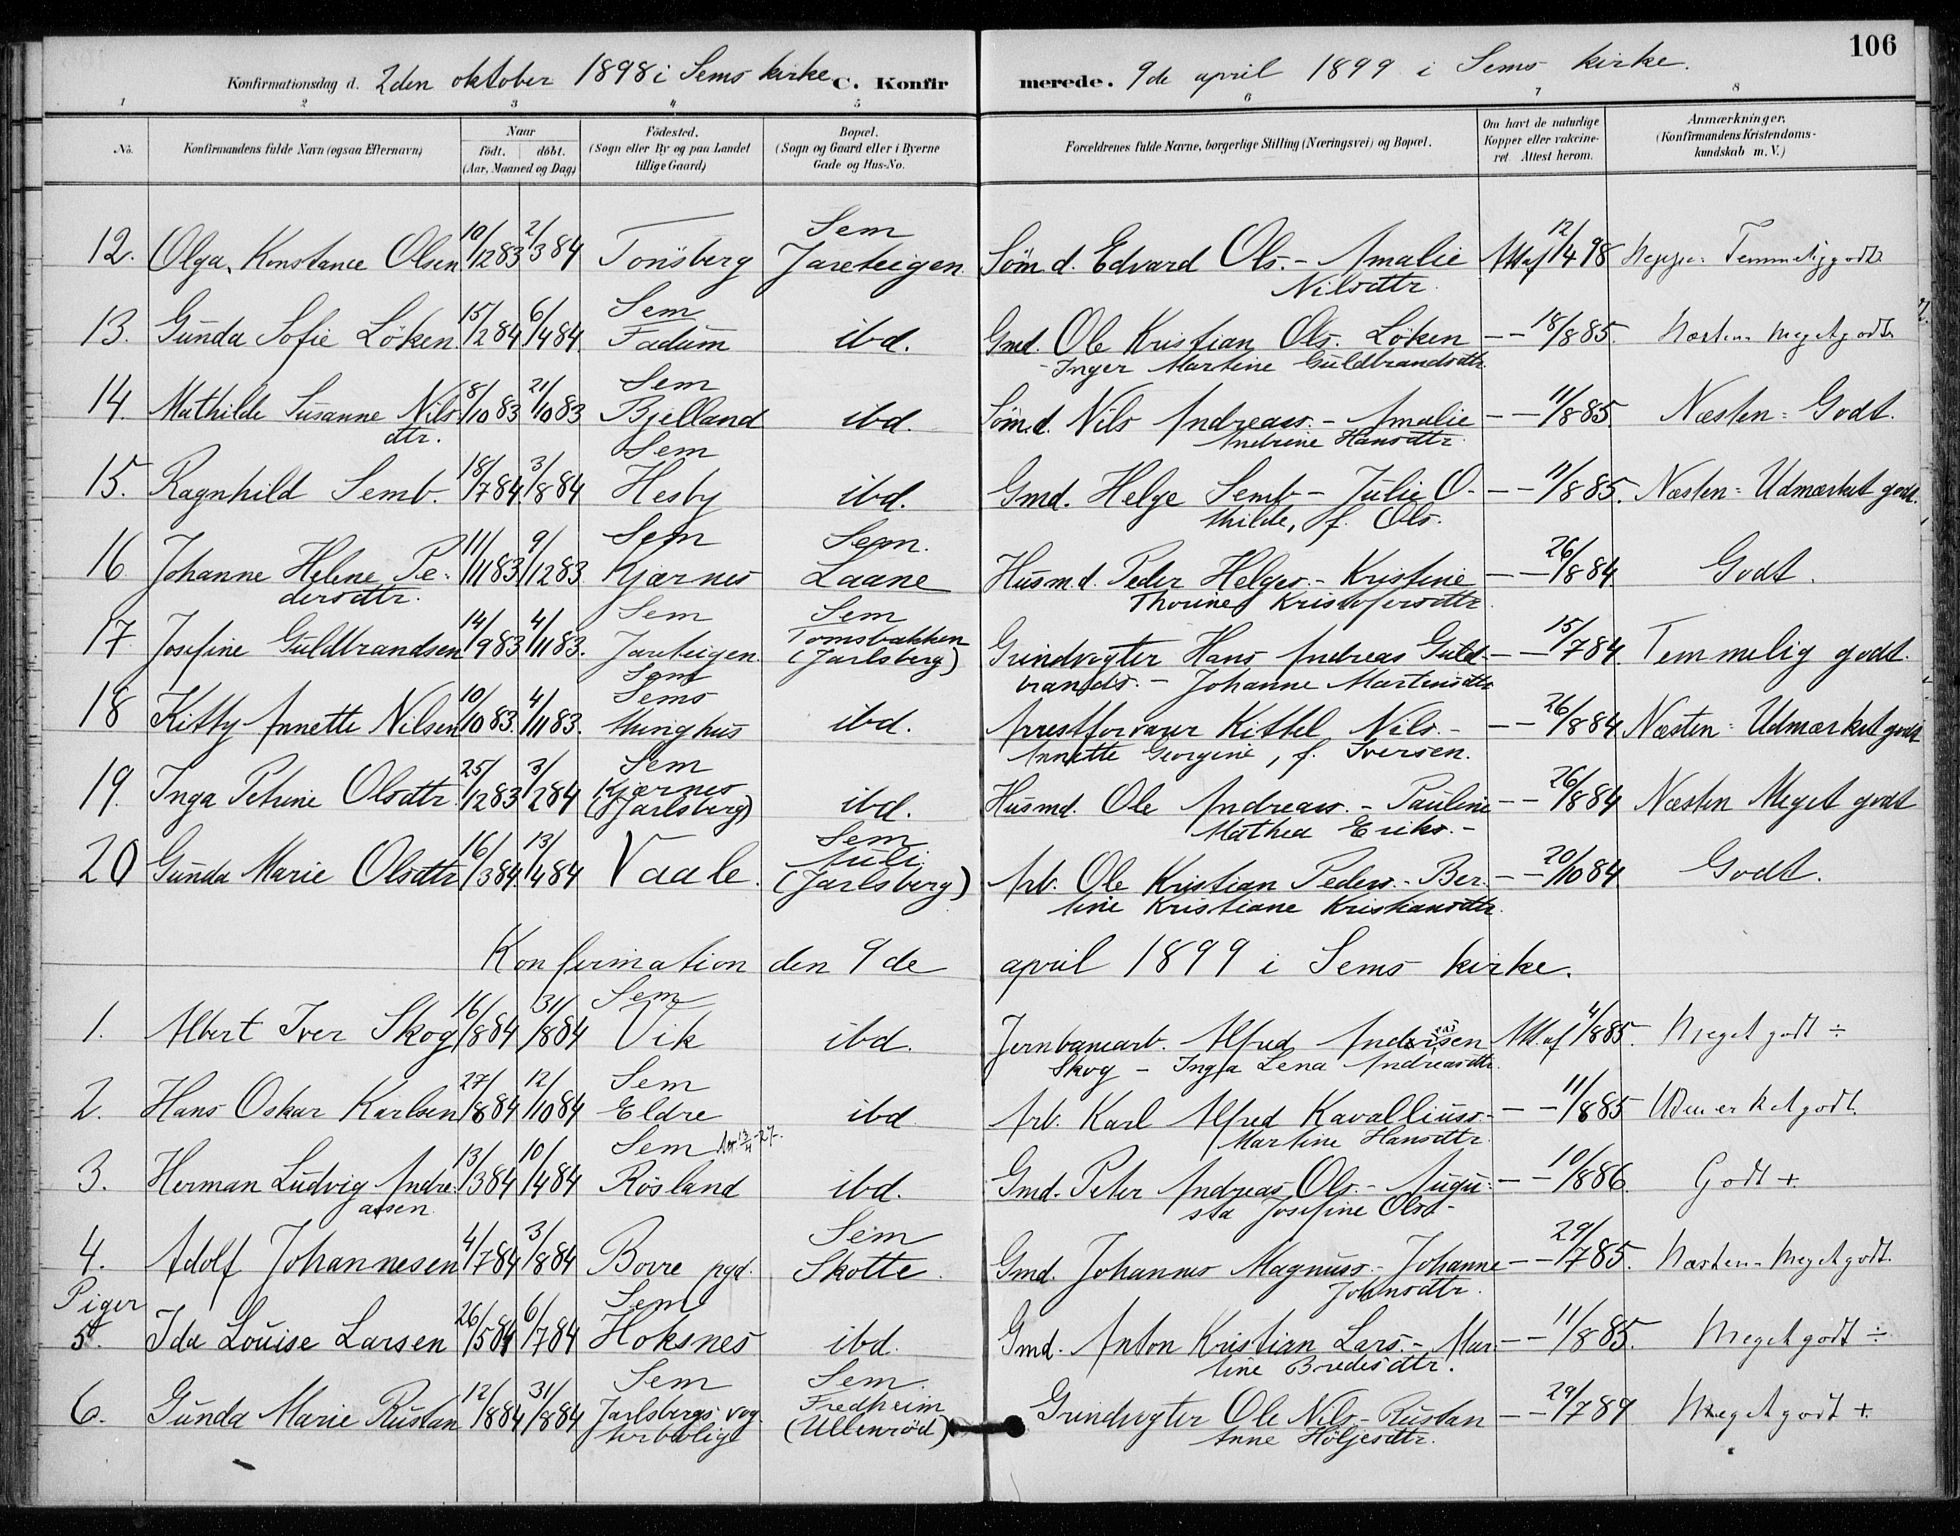 106
Konfirmationsdag d. 2den oktober 1898 i Sems kirke C. Konfirmerede. 9de april 1899 i Sems kirke.
1 2 3 4 5 6 7 8
No. Konfirmandens fulde Navn (ogsaa Efternavn) Naar født. døbt. (Aar, Maaned og Dag) Fødested. (Sogn eller By og paa Landet tillige Gaard) Bopæl. (Sogn og Gaard eller i Byerne Gade og Hus-No. Forældrenes fulde Navne, borgerlige Stilling (Næringsvei) og Bopæl. Om havt de naturlige Kopper eller vakcineret. Attest herom. Anmærkninger. (Konfirmandens Kristendomskundskab m. V.)
12. Olga Konstance Olsen 10/12 83 2/3 84 Tönsberg Sem Jareteigen Söm d. Edvard Ols. - Amalie Nilsdtr. Att af 12/4 98 Temmelig godt.
13. Gunda Sofie Löken 15/2 84 6/4 84 Sem Fadum ibd. Gmd. Ole Kristian Ols. Löken - Inger Martine Guldbrandsdtr. — — 18/8 85. Næsten Meget godt
14. Mathilde Susanne Nilsdtr. 8/10 83 21/10 83 Sem Bjelland ibd. Söm. d. Nils Andreass. - Amalie Andrine Hansdtr. — — 11/8 85. Næsten = Godt.
15. Ragnhild Semb. 18/7 84 3/8 84 Sem Hesby ibd. Gmd. Helge Semb - Julie Othilde, f. Ols. — — 11/8 85. Næsten = Udmærket godt.
16 Johanne Helene Pedersdtr. 11/11 83 9/12 83 Sem Kjærnes Sem. Laane Husmd. Peder Helges. - Kristine Thorine Kristofersdtr. — — 26/8 84 Godt.
17 Josefine Guldbrandsen 14/9 83 4/11 83. Sem Jareteigen. Sem Tomsbakken (Jarlsberg) Grindvogter Hans Andreas Guldbrands. - Johanne Martinsdtr — — 15/7 84. Temmelig godt.
18 Kitty Annette Nilsen 10/10 83. 4/11 83. Sem Sems thinghus ibd. Arrestforvarer Kittel Nils. - Annette Georgine, f. Iversen. — — 26/8 84 Næsten = Udmærket godt
19. Inga Petrine Olsdtr. 25/12 83 3/2 84 Sem Kjærnes (Jarlsberg) ibd. Husmd. Ole Andreass. - Pauline Mathea Eriks. - — — 26/8 84 Næsten Meget godt
20 Gunda Marie Olsdtr 16/3 84 13/4 84 Vaale. Sem Auli (Jarlsberg) Arb. Ole Kristian Peders. - Bertine Kristiane Kristiansdtr. — — 20/10 84 Godt.
Konfirmation den 9de april 1899 i Sems kirke.
1. Albert Iver Skog 16/8 84 31/8 84 Sem Vik ibd. Jernbanearb. Alfred Andreasen Skog - Inga Lena Andreasdtr. Att af 4/8 85. Meget godt ÷
2. Hans Oskar Karlsen 27/8 84 12/10 84 Sem Eldre ibd Arb. Karl Alfred Kavalliuss. - Martine Hansdtr. — — 11/8 85 Udmerket godt.
3. Herman Ludvig Andreassen 13/3 84 10/4 84 Sem Rösland ibd. Gmd. Peter Andreas Ols. - Augusta Josefine Olsd - — — 10/8 86. Godt +
4. Adolf Johannesen 4/7 84 3/8 84 Borre pgd. Sem Skotte. Gmd. Johannes Magnuss. - Johanne Johnsdtr. — — 29/7 85. Næsten - Meget godt.
Piger
5. Ida Louise Larsen 26/5 84 6/7 84 Sem Hoksnes ibd. Gmd. Anton Kristian Lars. - Martine Bredesdtr. — — 11/8 85. Meget godt ÷
6. Gunda Marie Rustan 12/8 84 31/8 84 Sem Jarlsbergs vogterbolig Sem. Fredheim (Ullenröd) Grindvogter Ole Nils. Rustan Anne Höljesdtr. — — 29/7 89 Meget godt +